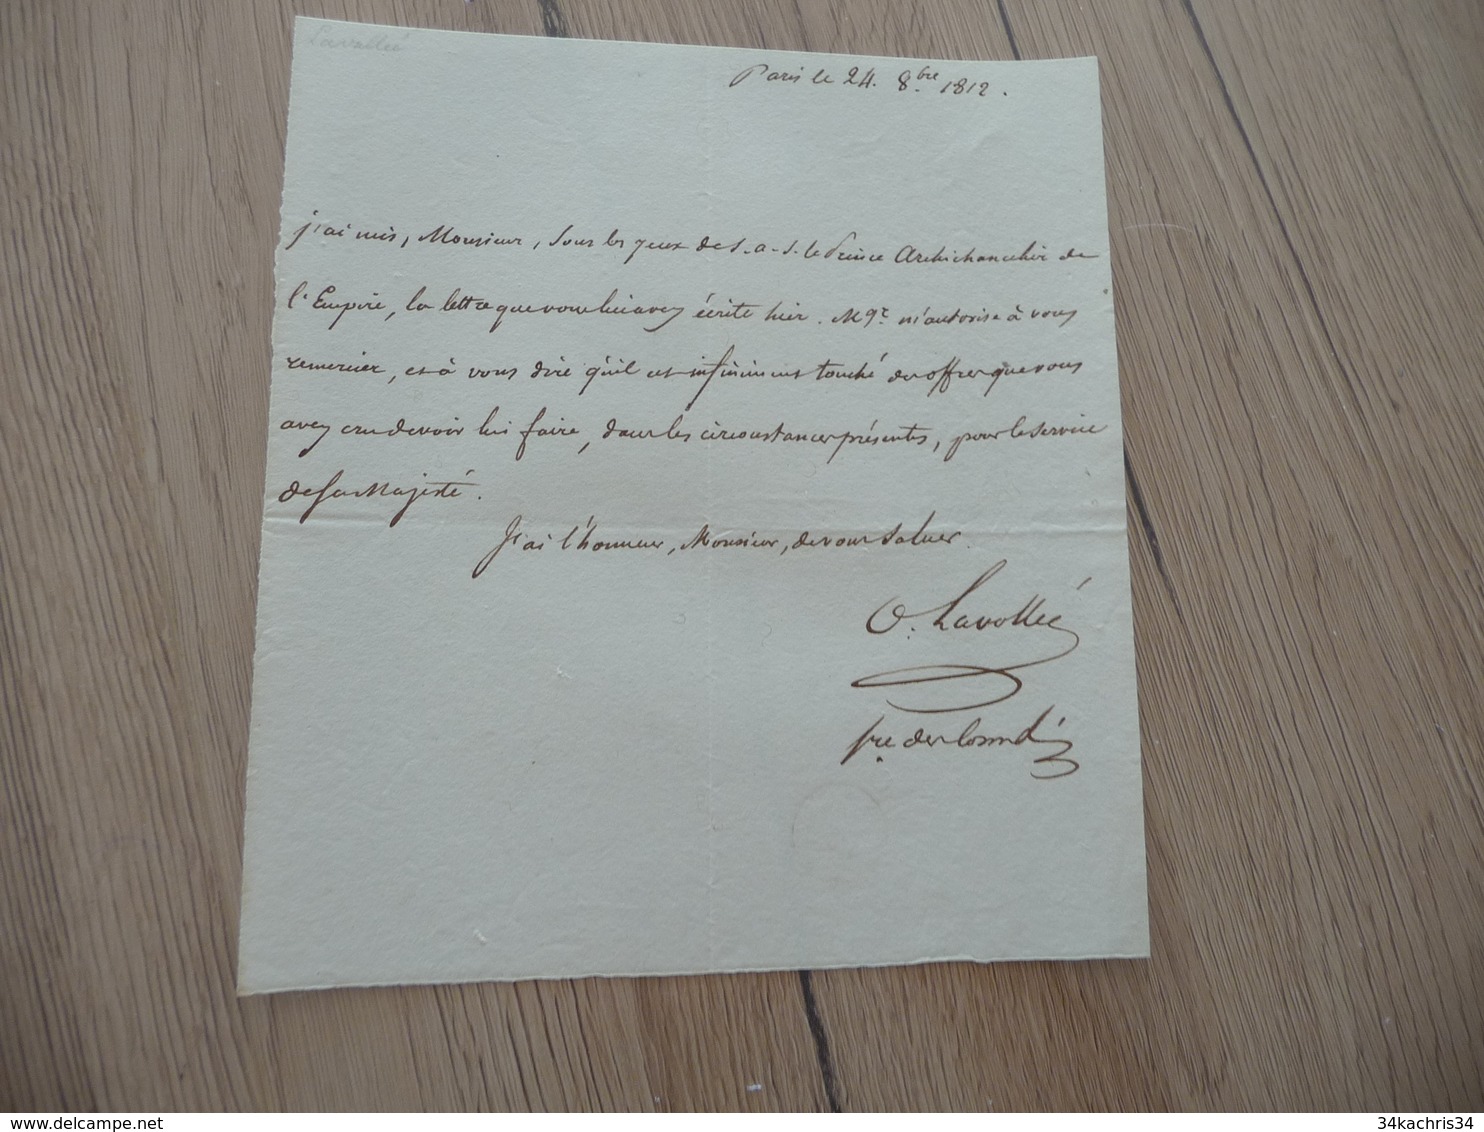 Lavollée
Paris le 24. 8.bre 1812.
j'ai mis, Monsieur, sous les yeux de S. a. S. le Prince Archichancelier de
l'Empire, la lettre que vous lui avez écrite hier. Mgr. m'autorise à vous
remercier, et à vous dire qu'il est infiniment touché des offres que vous
avez cru devoir lui faire, dans les circonstances présentes, pour le service
de Sa Majesté.
J'ai l'honneur, Monsieur, de vous saluer.
O. Lavollée
sre. des comdts
34kachris34